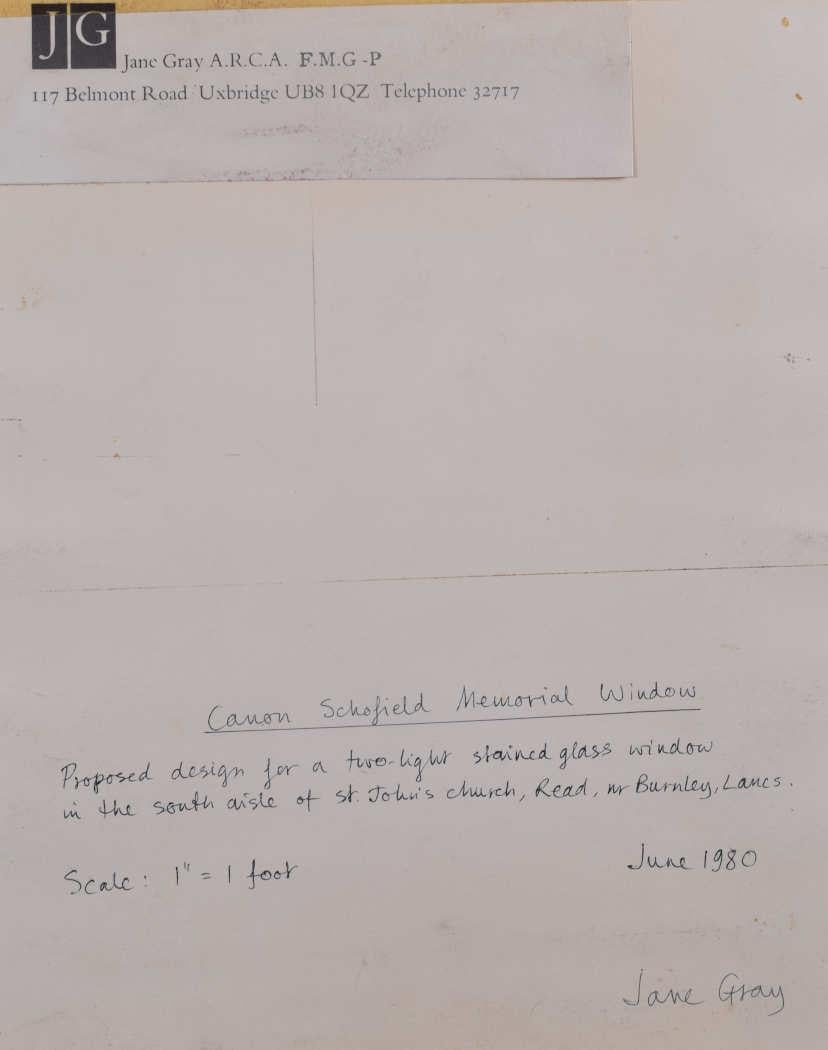 JG
Jane Gray A.R.C.A. F.M.G-P
117 Belmont Road Uxbridge UB8 1QZ Telephone 32717
Canon Schofield Memorial Window
Proposed design for a two-light stained glass window
in the south aisle of St. John's church, Read, nr Burnley, Lancs.
Scale: 1" = 1 foot
June 1980
Jane Gray